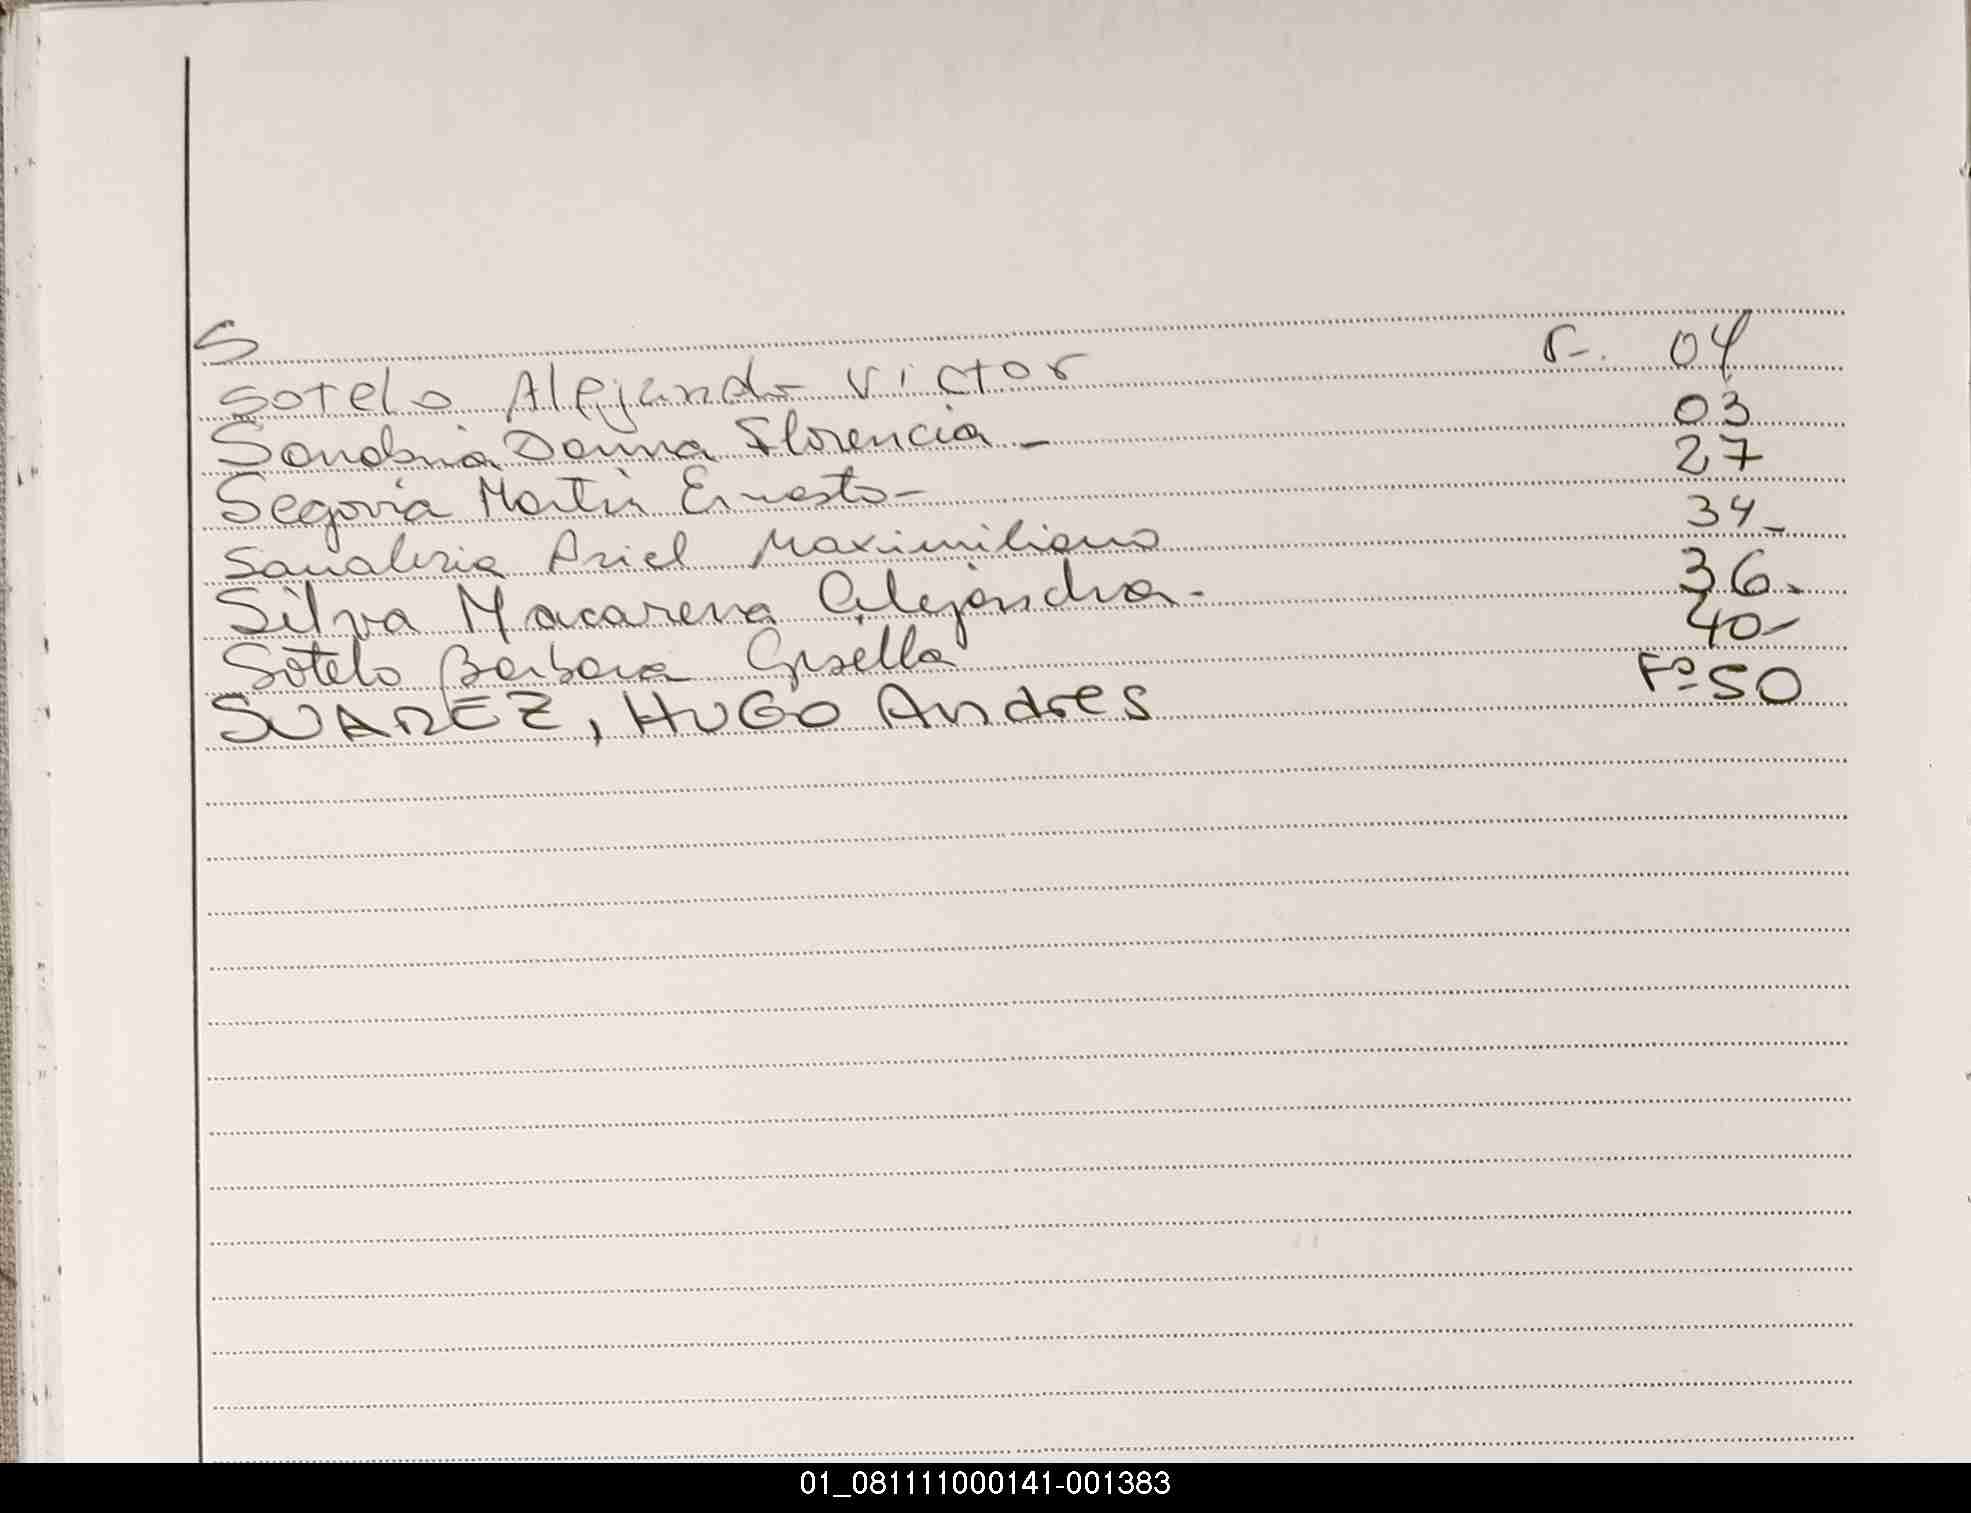 S
Sotelo Alejandro Victor F-. 04
Sanabria Danna Florencia - 03
Segovia Martin Ernesto - 27
Sanabria Ariel Maximiliano 34-
Silva Macarena Alejandra. 36.
Sotelo Barbara Gisella 40-
SUAREZ, HUGO Andres Fº 50
01_081111000141-001383